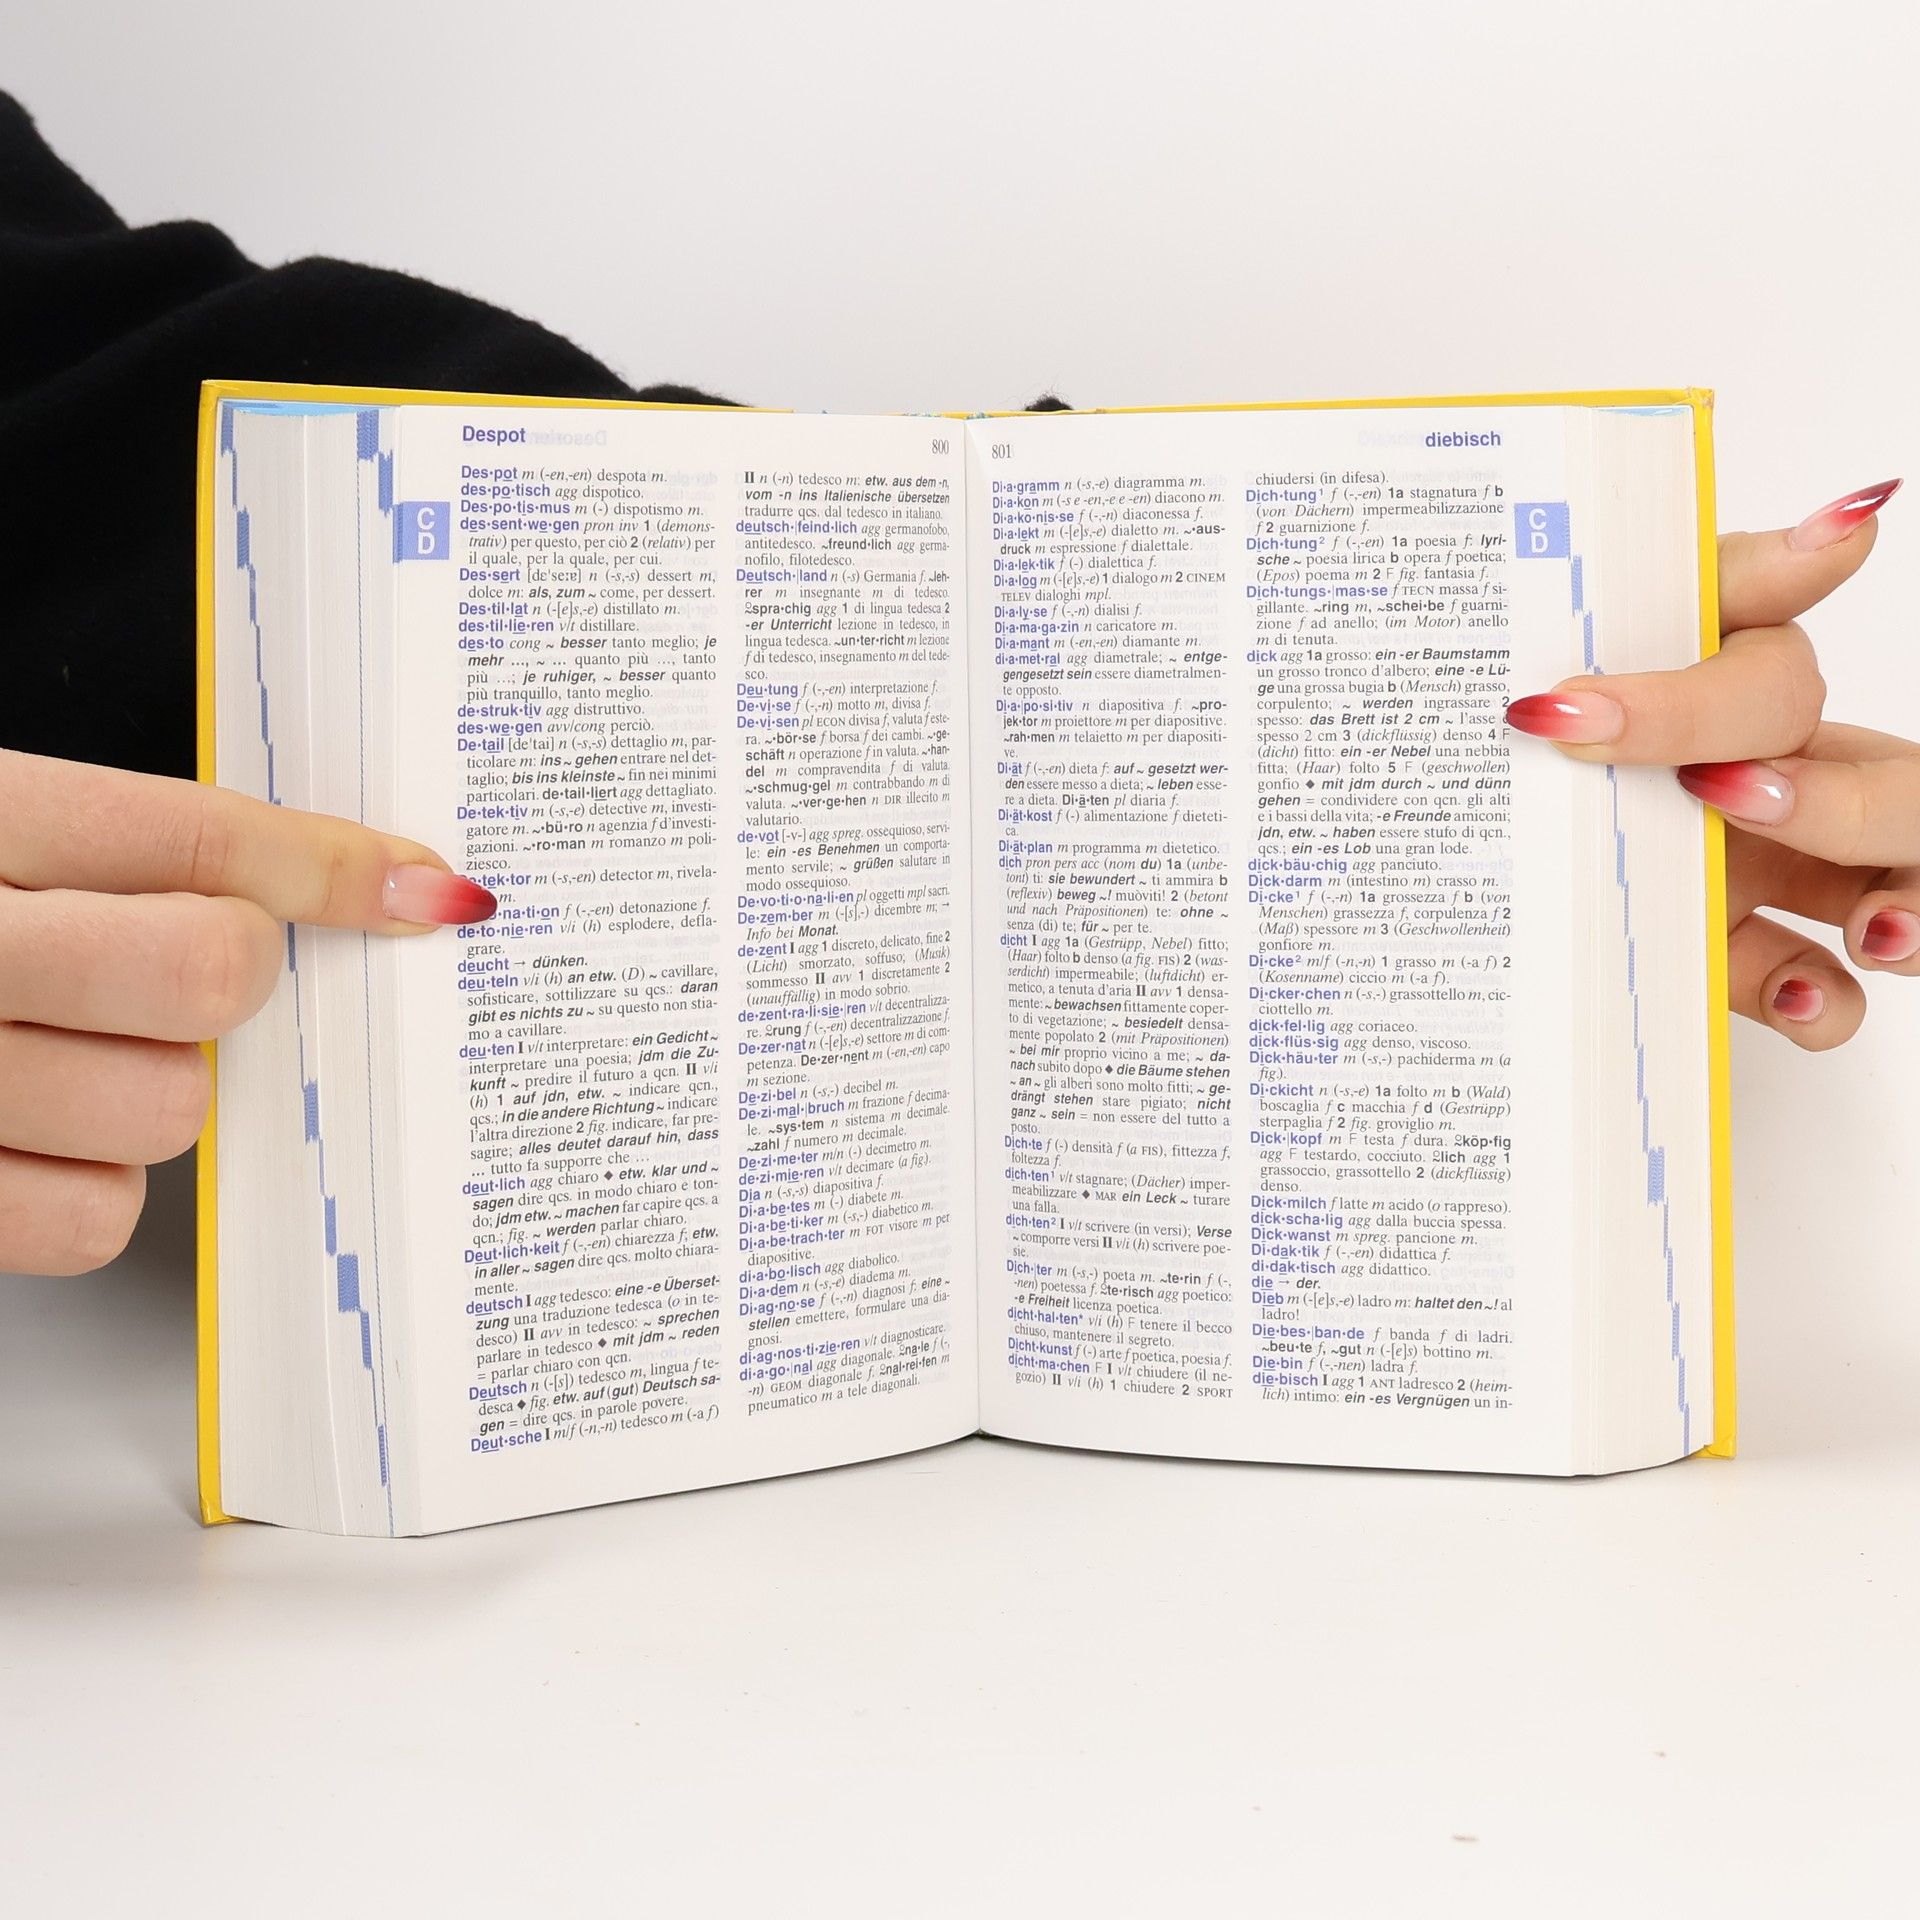 Despot
800
Des·pot m (-en,-en) despota m.
des·po·tisch agg dispotico.
Des·po·tis·mus m (-) dispotismo m.
des·sent·we·gen pron inv 1 (demons-
trativ) per questo, per ciò 2 (relativ) per
il quale, per la quale, per cui.
Des·sert [dɛˈseːɐ] n (-s,-s) dessert m,
dolce m: als, zum ~ come, per dessert.
Des·til·lat n (-[e]s,-e) distillato m.
des·til·lie·ren v/t distillare.
des·to cong ~ besser tanto meglio; je
mehr ..., ~ ... quanto più ..., tanto
più ...; je ruhiger, ~ besser quanto
più tranquillo, tanto meglio.
de·struk·tiv agg distruttivo.
des·we·gen avv/cong perciò.
De·tail [deˈtai] n (-s,-s) dettaglio m, par-
ticolare m: ins ~ gehen entrare nel det-
taglio; bis ins kleinste ~ fin nei minimi
particolari. de·tail·liert agg dettagliato.
De·tek·tiv m (-s,-e) detective m, investi-
gatore m. ~·bü·ro n agenzia f d'investi-
gazioni. ~·ro·man m romanzo m poli-
ziesco.
·tek·tor m (-s,-en) detector m, rivela-
m.
·na·ti·on f (-,-en) detonazione f.
de·to·nie·ren v/i (h) esplodere, defla-
grare.
deucht → dünken.
deu·teln v/i (h) an etw. (D) ~ cavillare,
sofisticare, sottilizzare su qcs.: daran
gibt es nichts zu ~ su questo non stia-
mo a cavillare.
deu·ten I v/t interpretare: ein Gedicht ~
interpretare una poesia; jdm die Zu-
kunft ~ predire il futuro a qcn. II v/i
(h) 1 auf jdn, etw. ~ indicare qcn.,
qcs.; in die andere Richtung ~ indicare
l'altra direzione 2 fig. indicare, far pre-
sagire; alles deutet darauf hin, dass
... tutto fa supporre che ...
deut·lich agg chiaro ◆ etw. klar und ~
sagen dire qcs. in modo chiaro e ton-
do; jdm etw. ~ machen far capire qcs. a
qcn.; fig. ~ werden parlar chiaro.
Deut·lich·keit f (-,-en) chiarezza f; etw.
in aller ~ sagen dire qcs. molto chiara-
mente.
deutsch I agg tedesco: eine -e Überset-
zung una traduzione tedesca (o in te-
desco) II avv in tedesco: ~ sprechen
parlare in tedesco ◆ mit jdm ~ reden
= parlar chiaro con qcn.
Deutsch n (-[s]) tedesco m, lingua f te-
desca ◆ fig. etw. auf (gut) Deutsch sa-
gen = dire qcs. in parole povere.
Deut·sche I m/f (-n,-n) tedesco m (-a f)
II n (-n) tedesco m: etw. aus dem -n,
vom -n ins Italienische übersetzen
tradurre qcs. dal tedesco in italiano.
deutsch·|feind·lich agg germanofobo,
antitedesco. ~freund·lich agg germa-
nofilo, filotedesco.
Deutsch·|land n (-s) Germania f. ~leh-
rer m insegnante m di tedesco.
2spra·chig agg 1 di lingua tedesca 2
-er Unterricht lezione in tedesco, in
lingua tedesca. ~un·ter·richt m lezione
f di tedesco, insegnamento m del tede-
sco.
Deu·tung f (-,-en) interpretazione f.
De·vi·se f (-,-n) motto m, divisa f.
De·vi·sen pl ECON divisa f, valuta f este-
ra. ~·bör·se f borsa f dei cambi. ~·ge-
schäft n operazione f in valuta. ~·han-
del m compravendita f di valuta.
~·schmug·gel m contrabbando m di
valuta. ~·ver·ge·hen n DIR illecito m
valutario.
de·vot [-v-] agg spreg. ossequioso, servi-
le: ein -es Benehmen un comporta-
mento servile; ~ grüßen salutare in
modo ossequioso.
De·vo·ti·o·na·li·en pl oggetti mpl sacri.
De·zem·ber m (-[s],-) dicembre m; →
Info bei Monat.
de·zent I agg 1 discreto, delicato, fine 2
(Licht) smorzato, soffuso; (Musik)
sommesso II avv 1 discretamente 2
(unauffällig) in modo sobrio.
de·zen·tra·li·sie·|ren v/t decentralizza-
re. 2rung f (-,-en) decentralizzazione f.
De·zer·nat n (-[e]s,-e) settore m di com-
petenza. De·zer·nent m (-en,-en) capo
m sezione.
De·zi·bel n (-s,-) decibel m.
De·zi·mal·|bruch m frazione f decima-
le. ~sys·tem n sistema m decimale.
~zahl f numero m decimale.
De·zi·me·ter m/n (-) decimetro m.
de·zi·mie·ren v/t decimare (a fig).
Dia n (-s,-s) diapositiva f.
Di·a·be·tes m (-) diabete m.
Di·a·be·ti·ker m (-s,-) diabetico m.
Di·a·be·trach·ter m FOT visore m per
diapositive.
di·a·bo·lisch agg diabolico.
Di·a·dem n (-s,-e) diadema m.
Di·ag·no·se f (-,-n) diagnosi f: eine ~
stellen emettere, formulare una dia-
gnosi.
di·ag·nos·ti·zie·ren v/t diagnosticare.
di·a·go·|nal agg diagonale. 2na·le f (-,
-n) GEOM diagonale f. 2nal·rei·fen m
pneumatico m a tele diagonali.
C
D
801
diebisch
Di·a·gramm n (-s,-e) diagramma m.
Di·a·kon m (-s e -en,-e e -en) diacono m.
Di·a·ko·nis·se f (-,-n) diaconessa f.
Di·a·lekt m (-[e]s,-e) dialetto m. ~·aus-
druck m espressione f dialettale.
Di·a·lek·tik f (-) dialettica f.
Di·a·log m (-[e]s,-e) 1 dialogo m 2 CINEM
TELEV dialoghi mpl.
Di·a·ly·se f (-,-n) dialisi f.
Di·a·ma·ga·zin n caricatore m.
Di·a·mant m (-en,-en) diamante m.
di·a·met·ral agg diametrale; ~ entge-
gengesetzt sein essere diametralmen-
te opposto.
Di·a·|po·si·tiv n diapositiva f. ~·pro-
jek·tor m proiettore m per diapositive.
~·rah·men m telaietto m per diapositi-
ve.
Di·ät f (-,-en) dieta f: auf ~ gesetzt wer-
den essere messo a dieta; ~ leben esse-
re a dieta. Di·ä·ten pl diaria f.
Di·ät·kost f (-) alimentazione f dieteti-
ca.
Di·ät·plan m programma m dietetico.
dich pron pers acc (nom du) 1a (unbe-
tont) ti: sie bewundert ~ ti ammira b
(reflexiv) beweg ~! muòviti! 2 (betont
und nach Präpositionen) te: ohne ~
senza (di) te; für ~ per te.
dicht I agg 1a (Gestrüpp, Nebel) fitto;
(Haar) folto b denso (a fig. FIS) 2 (was-
serdicht) impermeabile; (luftdicht) er-
metico, a tenuta d'aria II avv 1 densa-
mente: ~ bewachsen fittamente coper-
to di vegetazione; ~ besiedelt densa-
mente popolato 2 (mit Präpositionen)
~ bei mir proprio vicino a me; ~ da-
nach subito dopo ◆ die Bäume stehen
~ an ~ gli alberi sono molto fitti; ~ ge-
drängt stehen stare pigiato; nicht
ganz ~ sein = non essere del tutto a
posto.
Dich·te f (-) densità f (a FIS), fittezza f,
foltezza f.
dich·ten¹ v/t stagnare; (Dächer) imper-
meabilizzare ◆ MAR ein Leck ~ turare
una falla.
dich·ten² I v/t scrivere (in versi); Verse
~ comporre versi II v/i (h) scrivere poe-
sie.
Dich·|ter m (-s,-) poeta m. ~te·rin f (-,
-nen) poetessa f. 2te·risch agg poetico:
-e Freiheit licenza poetica.
dicht·hal·ten* v/i (h) F tenere il becco
chiuso, mantenere il segreto.
Dicht·kunst f (-) arte f poetica, poesia f.
dicht·ma·chen F I v/t chiudere (il ne-
gozio) II v/i (h) 1 chiudere 2 SPORT
chiudersi (in difesa).
Dich·tung¹ f (-,-en) 1a stagnatura f b
(von Dächern) impermeabilizzazione
f 2 guarnizione f.
Dich·tung² f (-,-en) 1a poesia f: lyri-
sche ~ poesia lirica b opera f poetica;
(Epos) poema m 2 F fig. fantasia f.
Dich·tungs·|mas·se f TECN massa f si-
gillante. ~ring m, ~schei·be f guarni-
zione f ad anello; (im Motor) anello
m di tenuta.
dick agg 1a grosso: ein -er Baumstamm
un grosso tronco d'albero; eine -e Lü-
ge una grossa bugia b (Mensch) grasso,
corpulento; ~ werden ingrassare 2
spesso: das Brett ist 2 cm ~ l'asse è
spesso 2 cm 3 (dickflüssig) denso 4 F
(dicht) fitto: ein -er Nebel una nebbia
fitta; (Haar) folto 5 F (geschwollen)
gonfio ◆ mit jdm durch ~ und dünn
gehen = condividere con qcn. gli alti
e i bassi della vita; -e Freunde amiconi;
jdn, etw. ~ haben essere stufo di qcn.,
qcs.; ein -es Lob una gran lode.
dick·bäu·chig agg panciuto.
Dick·darm m (intestino m) crasso m.
Di·cke¹ f (-,-n) 1a grossezza f b (von
Menschen) grassezza f, corpulenza f 2
(Maß) spessore m 3 (Geschwollenheit)
gonfiore m.
Di·cke² m/f (-n,-n) 1 grasso m (-a f) 2
(Kosename) ciccio m (-a f).
Di·cker·chen n (-s,-) grassottello m, cic-
ciottello m.
dick·fel·lig agg coriaceo.
dick·flüs·sig agg denso, viscoso.
Dick·häu·ter m (-s,-) pachiderma m (a
fig.).
Di·ckicht n (-s,-e) 1a folto m b (Wald)
boscaglia f c macchia f d (Gestrüpp)
sterpaglia f 2 fig. groviglio m.
Dick·|kopf m F testa f dura. 2köp·fig
agg F testardo, cocciuto. 2lich agg 1
grassoccio, grassottello 2 (dickflüssig)
denso.
Dick·milch f latte m acido (o rappreso).
dick·scha·lig agg dalla buccia spessa.
Dick·wanst m spreg. pancione m.
Di·dak·tik f (-,-en) didattica f.
di·dak·tisch agg didattico.
die → der.
Dieb m (-[e]s,-e) ladro m: haltet den ~! al
ladro!
Die·bes·|ban·de f banda f di ladri.
~beu·te f, ~gut n (-[e]s) bottino m.
Die·bin f (-,-nen) ladra f.
die·bisch I agg 1 ANT ladresco 2 (heim-
lich) intimo: ein -es Vergnügen un in-
C
D